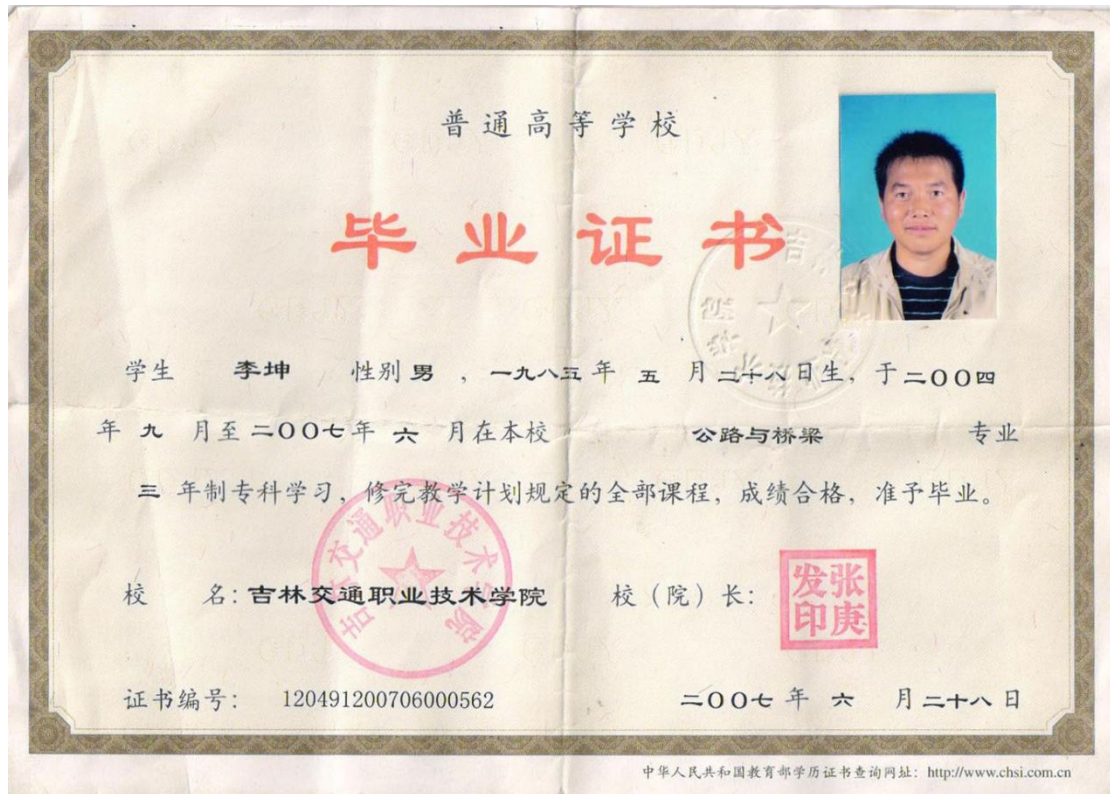 普通高等学校
毕业证书
学生 李坤 性别 男 ，一九八五 年 五 月 二十八 日生，于 二〇〇四
年 九 月至 二〇〇七 年 六 月在本校 公路与桥梁 专业
三 年制专科学习，修完教学计划规定的全部课程，成绩合格，准予毕业。
吉林交通职业技术学院
校 名：吉林交通职业技术学院 校（院）长：
张庚发印
证书编号： 120491200706000562 二〇〇七 年 六 月 二十八 日
中华人民共和国教育部学历证书查询网址：http://www.chsi.com.cn